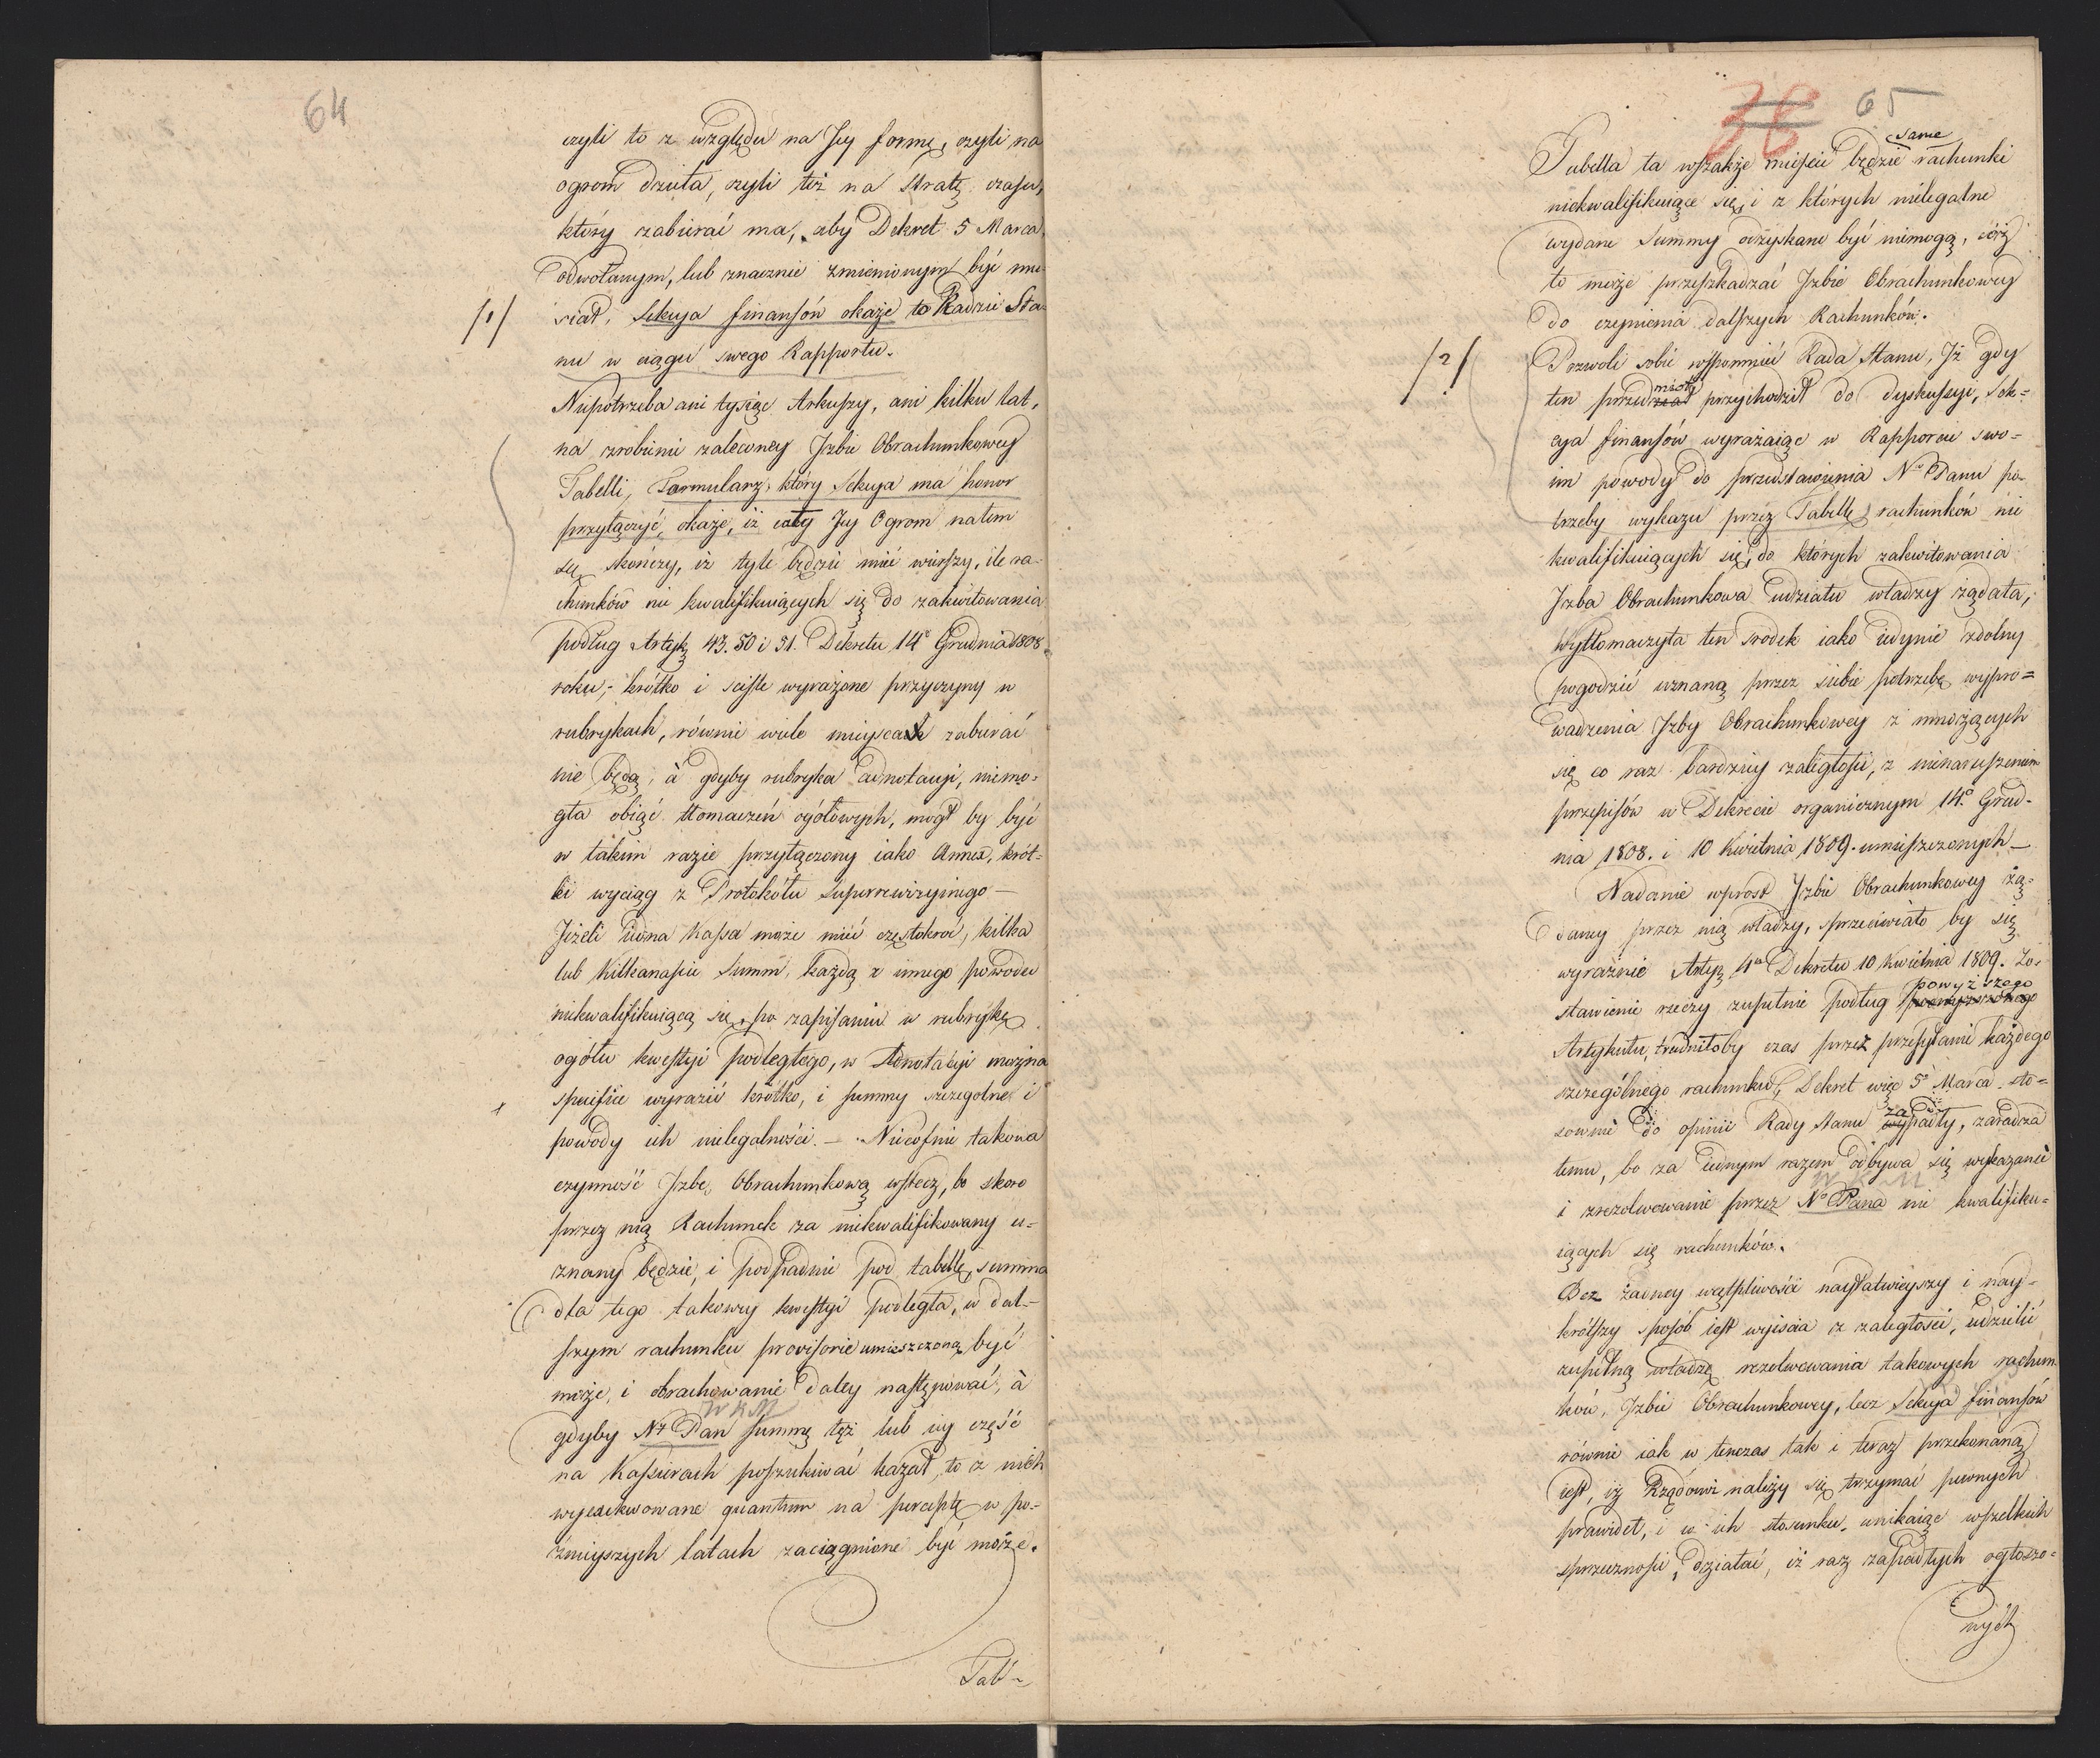 64
czyli to z względu na Jey formę, czyli na
ogrom dzieła, czyli też na stratę czasu,
który zabierać ma, aby Dekret 5 Marca
odwołanym, lub znacznie zmienionym być mu-
/1/ siał, Sekcya finansów okaże to Radzie Sta-
nu w ciągu swego Rapportu.
Niepotrzeba ani tysiąc Arkuszy, ani kilku lat,
na zrobienie zaleconey Izbie Obrachunkowey
Tabelli, Formularz, który Sekcya ma honor
przyłączyć, okaże, iż cały Jey Ogrom natem
się skończy, iż tyle będzie mieć wierszy, ile ra-
chunków nie kwalifikuiących się do zakwitowania
podług Artykę 43. 50 i 51. Dekretu 14º Grudnia 1808
roku, krótko i sciśle wyrażone przyczyny w
rubrykach, równie wiele mieysca zabierać
nie będą, à gdyby rubryka adnotacyi, niemo-
gła obiąć tłomaczeń ogółowych, mógł by być
w takim razie przyłączony iako Annex, krót-
ki wyciąg z Protokółu Superrewizyinego —
Jeżeli iedna Kassa może mieć częstokroć, kilka
lub Kilkanaście Summ, każdą z innego powodu
niekwalifikuiącą się, po zapisaniu w rubrykę
ogółu kwestyi podległego, w Adnotacyi można
specifice wyrazić krótko, i summy szczegolne i
powody ich nielegalności. — Niecofnie takowa
czynność Izbę Obrachunkową wstecz, bo skoro
przez nią Rachunek za niekwalifikowany u-
znany będzie, i podpadnie pod tabellę, summa
dla tego takowey kwestyi podległa, w dal-
szym rachunku provisorie umieszczoną być
może, i obrachowanie daley następować, à
W K M
gdyby Nº Pan summę tęż lub iey część
na Kassierach poszukiwać kazał, to z nich
wyexekwowane quantum na perceptę w po-
źnieyszych latach zaciągnione być może.
Tab-
38 65
same
Tabella ta wszakże mieścić będzie rachunki
niekwalifikuiące się, i z których nielegalne
wydane Summy odzyskane być niemogą, cóż
to może przeszkadzać Izbie Obrachunkowey
do czynienia dalszych Rachunków.
/2/ Pozwoli sobie wspomnieć Rada Stanu, Iż gdy
miot
ten przedział przychodził do dyskussyi, Sek-
cya finansów wyrażaiąc w Rapporcie swo-
im powody do przedstawienia Nº Panu po-
trzeby wykazu przez Tabellę rachunków nie
kwalifikuiących się, do których zakwitowania
Izba Obrachunkowa udziału władzy żądała,
Wytłomaczyła ten srodek iako iedynie zdolny
pogodzić uznaną przez siebie potrzebę wypro-
wadzenia Izby Obrachunkowey z mnożących
się co raz bardziey zaległości, z nienaruszeniem
przepisów w Dekrecie organicznym 14º Grud-
nia 1808. i 10 Kwietnia 1809. umieszczonych —
Nadanie wprost Izbie Obrachunkowey żą-
daney przez nią władzy, sprzeciwiało by się
wyraźnie Artyę 4º Dekretu 10 Kwietnia 1809. Zo-
powyższego
stawienie rzeczy zupełnie podług
Artykułu, trudniłoby czas przez przesyłanie każdego
szczególnego rachunku, Dekret więc 5º Marca sto-
za
sownie do opinii Rady Stanu wypadły, zaradza
temu, bo za iednym razem odbywa się wykazanie
W K M
i zrezolwowanie przez Nº Pana nie kwalifiku-
iących się rachunków.
Bez żadney wątpliwości nayłatwieyszy i nay-
krótszy sposób iest wyiścia z zaległości, udzielić
zupełną władzę rezolwowania takowych rachun-
ków, Izbie Obrachunkowey, lecz Sekcya finansów
równie iak w tenczas tak i teraz przekonaną
iest, iż Rządowi należy się trzymać pewnych
prawideł, i w ich stosunku, unikaiąc wszelkich
sprzeczności, działać, iż raz zapadłych ogłoszo-
nych